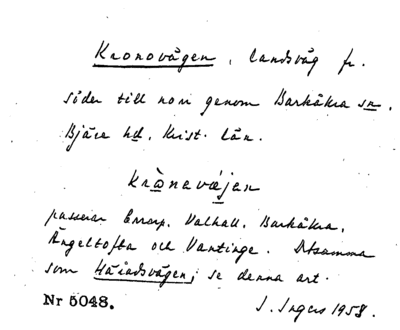 Kronovägen, landsväg fr.
söder till norr genom Barkåkra sn.
Bjäre hd. Krist. län.
krònavæjan
passerar Errarp, Valhall, Barkåkra,
Ängeltofta och Vantinge. Detsamma
som Häradsvägen, se denna art.
Nr 5048. I. Ingers 1958.